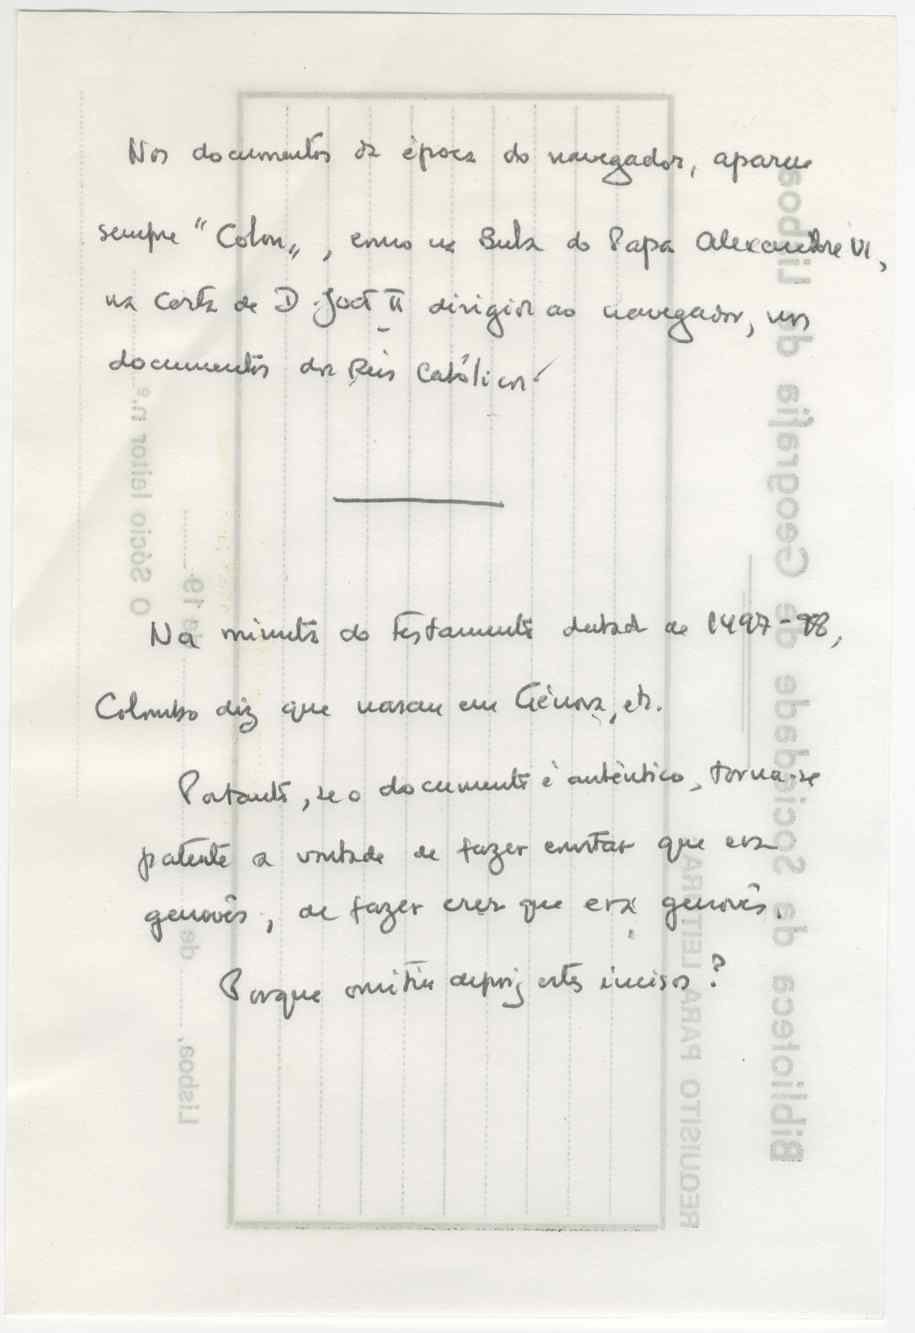 Nos documentos da época do navegador, aparece
sempre "Colon", como na Bula do Papa Alexandre VI,
na carta de D. João II dirigida ao navegador, nos
documentos dos Reis Católicos.
Na minuta do testamento datada de 1497-98,
Colombo diz que nasceu em Génova, etc.
Portanto, se o documento é autêntico, torna-se
patente a vontade de fazer constar que era
genovês, de fazer crer que era genovês.
Porque omitiu depois estes incisos?
Biblioteca da Sociedade de Geografia de Lisboa
REQUISITO PARA LEITURA
Lisboa, de de 19
O Sócio leitor n.º